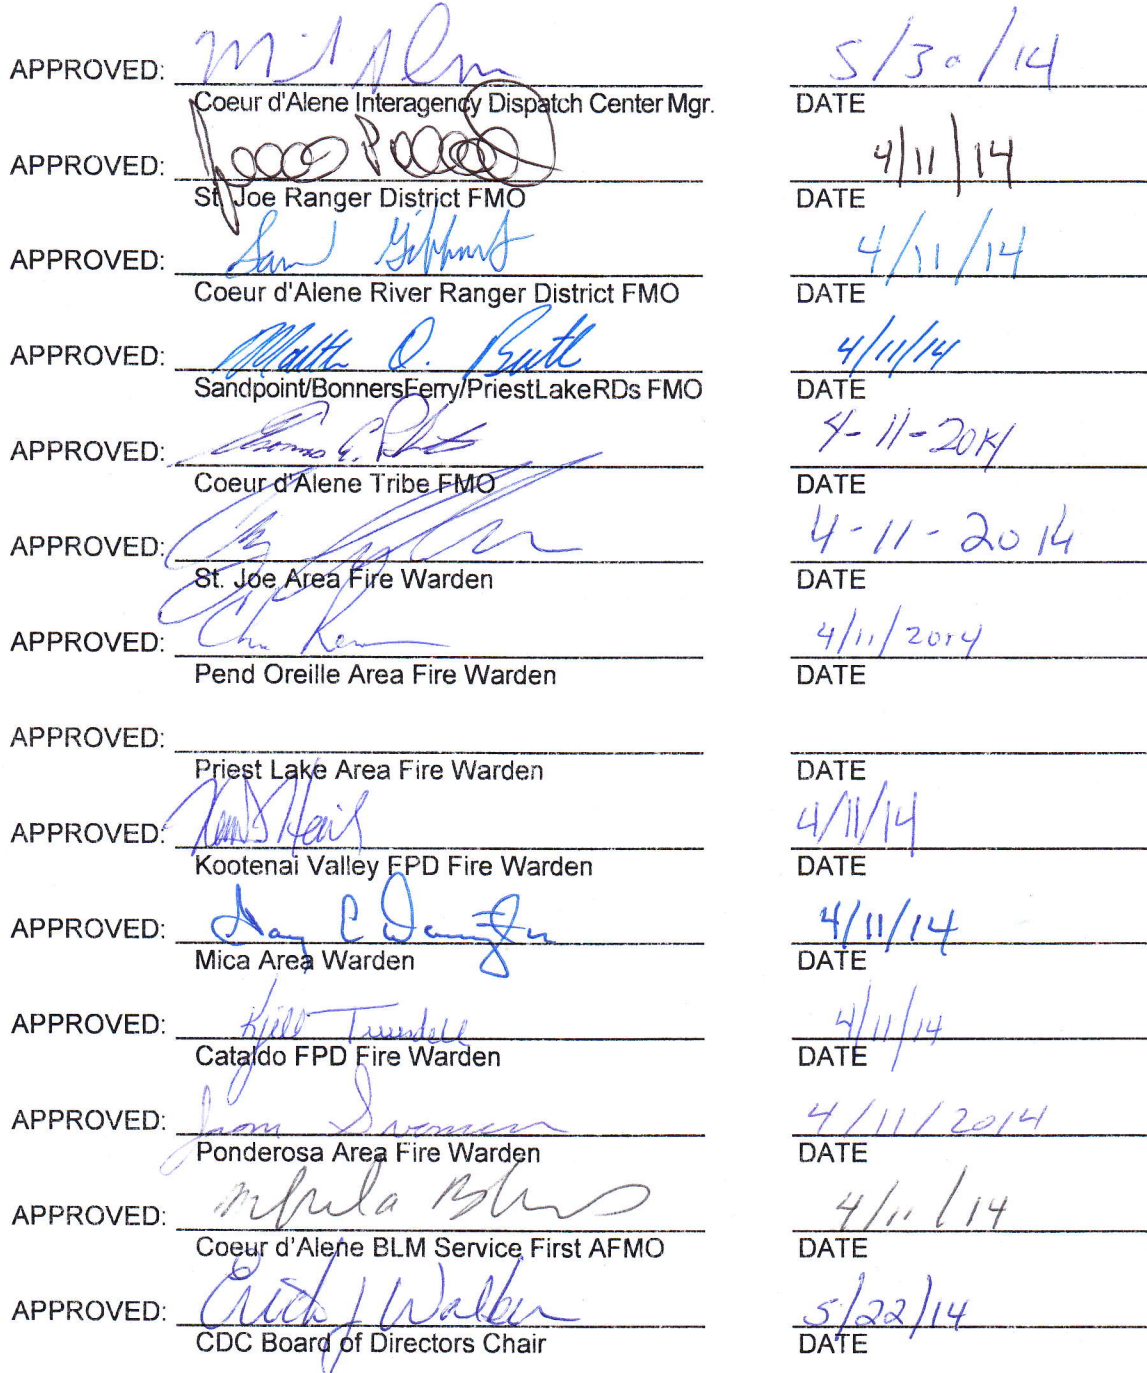 APPROVED: 5/30/14
Coeur d'Alene Interagency Dispatch Center Mgr. DATE
APPROVED: 4/11/14
St. Joe Ranger District FMO DATE
APPROVED: Sam 4/11/14
Coeur d'Alene River Ranger District FMO DATE
APPROVED: Matth Q. Butl 4/11/14
Sandpoint/BonnersFerry/PriestLakeRDs FMO DATE
APPROVED: 4-11-2014
Coeur d'Alene Tribe FMO DATE
APPROVED: 4-11-2014
St. Joe Area Fire Warden DATE
APPROVED: 4/11/2014
Pend Oreille Area Fire Warden DATE
APPROVED:
Priest Lake Area Fire Warden DATE
APPROVED: 4/11/14
Kootenai Valley FPD Fire Warden DATE
APPROVED: 4/11/14
Mica Area Warden DATE
APPROVED: Kjell Truesdell 4/11/14
Cataldo FPD Fire Warden DATE
APPROVED: 4/11/2014
Ponderosa Area Fire Warden DATE
APPROVED: 4/11/14
Coeur d'Alene BLM Service First AFMO DATE
APPROVED: Erick J Walker 5/22/14
CDC Board of Directors Chair DATE